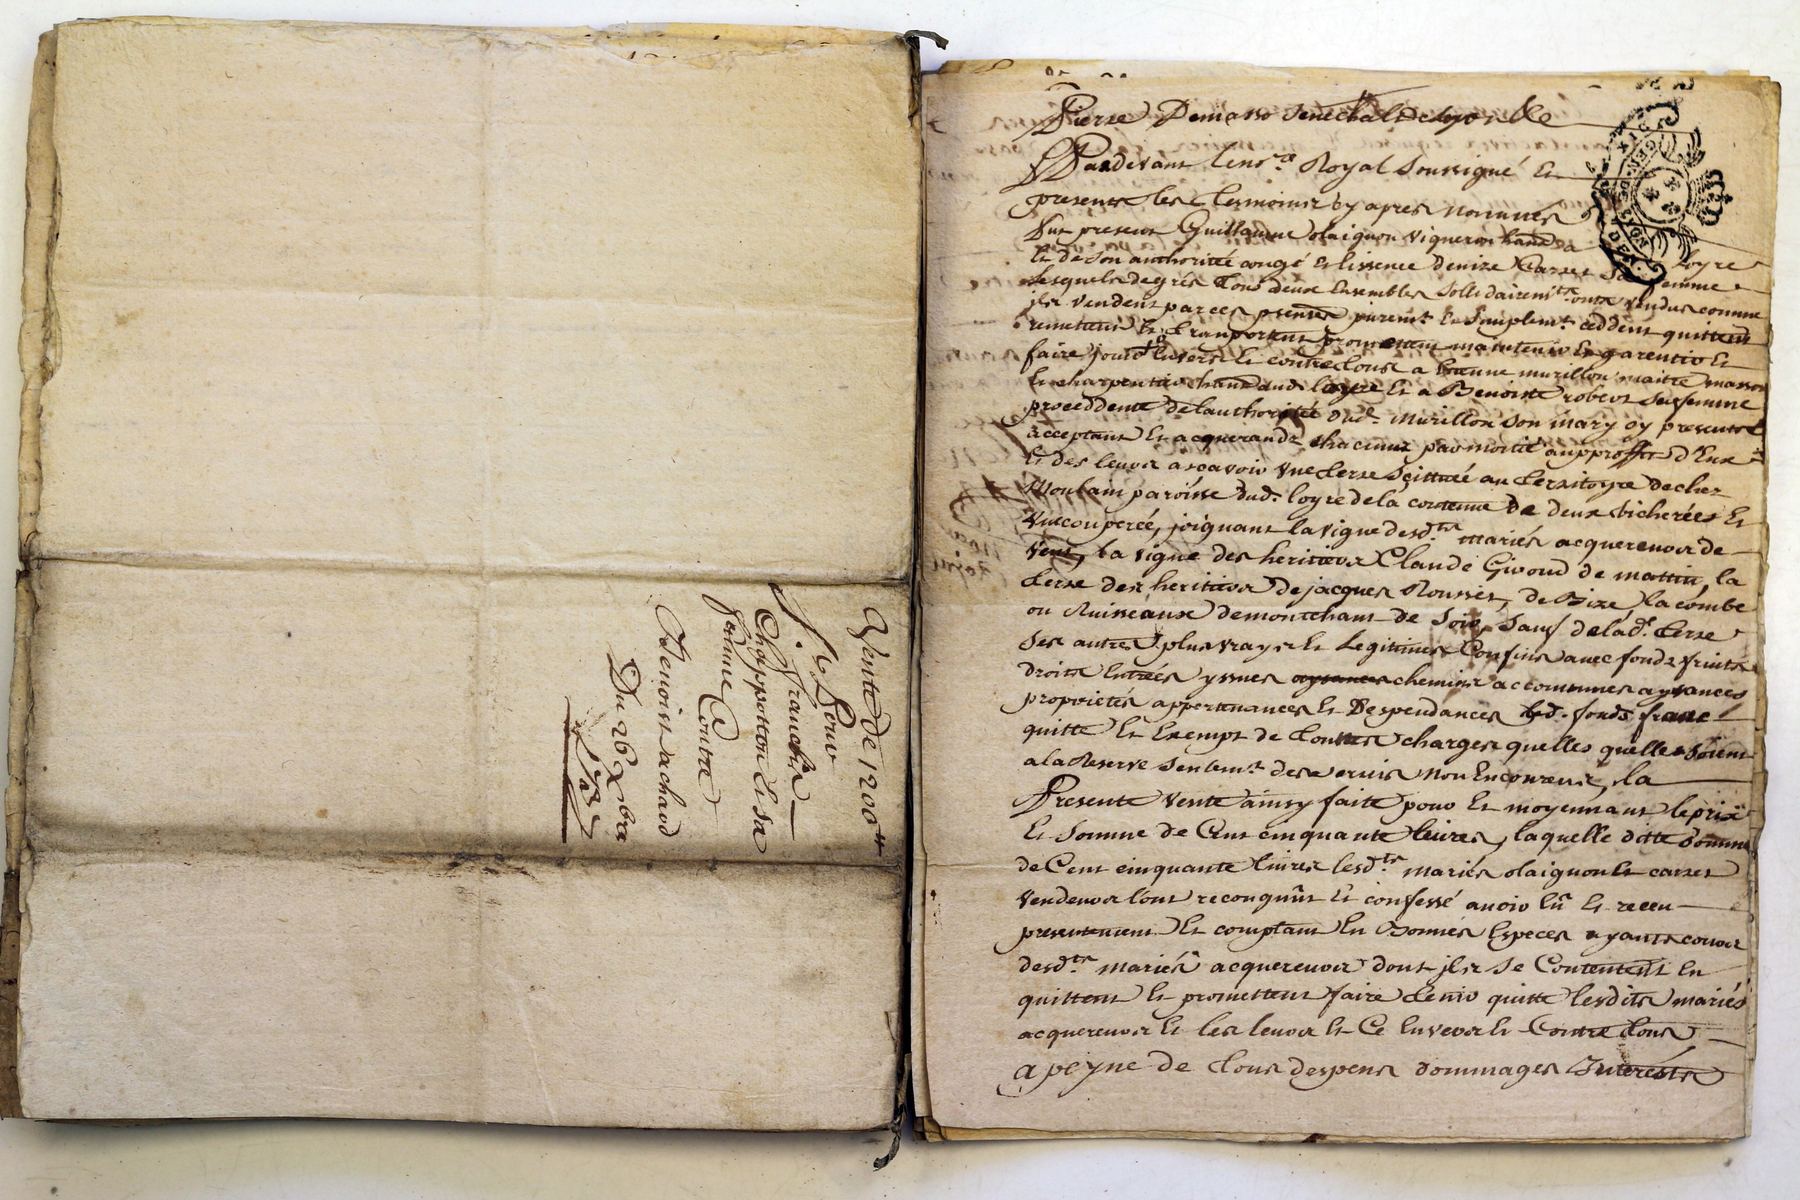 Vente de 1200ᵗᵗ
Pour
S.ʳ francois
Chappotton Et sa
femme Contre
Benoist Dachaud
Du 26 Xbre
Pierre Demasso Senechal De Lyon &c
Pardevant le no.re Royal Soussigné Et
presents les tesmoins cy apres nommés
fut present Guillaume olaignon vigneron
Et de son authorité congé Et lissence denize Carret sa femme
Lesquels de grés tous deux Ensembles sollidairem.t ont vendus comme
ils vendent par ces presentes purem.t Et simplem.t ceddent quittent
remettent Et transportent promettent maintenir Et garentir Et
faire jouir Envers Et contre tous a murillon maitre masson
Et charpentier dud. loyre Et a Benoiste robert sa femme
proceddente de lauthorité dud. murillon son mary cy presents
acceptant Et acquerands chacun par moitié au proffit d'Eux
Et des leurs a scavoir une terre scittuée au territoyre de chez
Moulain paroisse dud. loyre de la contenue de deux bicherées Et
une couperée, joignant la vigne desd.ts mariés acquereurs de
vent, la vigne des heritiers Claude Giroud de mattin, la
terre des heritiers de jacques Rousset, de Bize la combe
ou Ruisseaux de montchant de soir, sauf de lad. terre
ses autres plus vrays Et Legitimes Confins avec fonds fruits
droits Entrées yssues chemins accoutumes aysances
proprietés appertenances Et Despendances led. fonds franc
quitte Et Exempt de touttes charges quelles quelles soient
a la Reserve seulem.t des servis non Encourus, la
Presente vente ainsy faite pour Et moyennant le prix
Et somme de Cent cinquante livres, laquelle ditte somme
de Cent cinquante livres lesd.ts mariés olaignon Et carret
vendeurs l'ont reconnût Et confessé avoir Eû Et receu
presentement Et comptant En Bonnes Especes ayants cours
desd.ts mariés acquereurs dont ils se Contentent En
quittent Et promettent faire tenir quitte lesdits mariés
acquereurs Et les leurs Et Ce Envers Et Contre tous
a peyne de tous despens dommages Interests